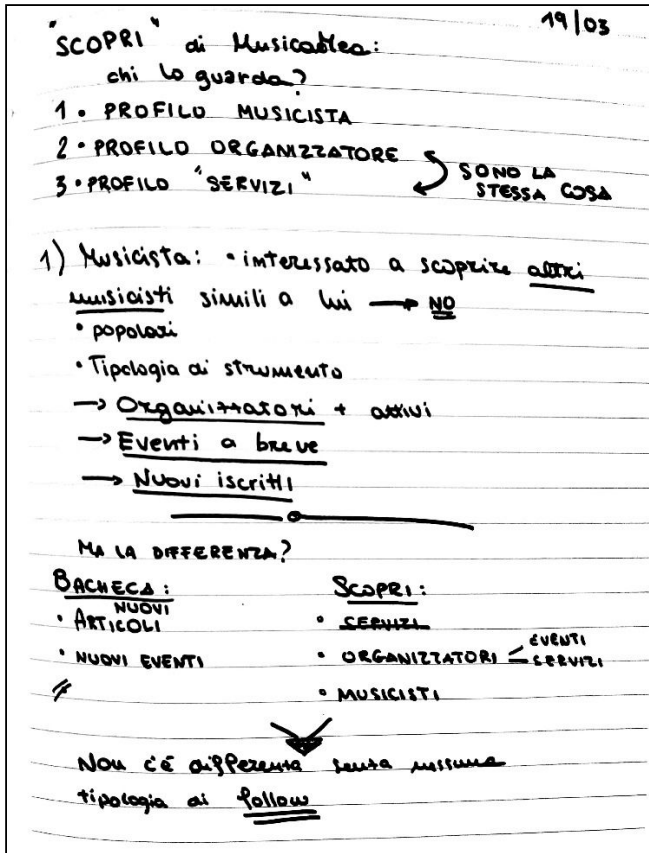 19/03
"SCOPRI" di Musicablea:
chi lo guarda?
1. PROFILO MUSICISTA
2. PROFILO ORGANIZZATORE
3. PROFILO "SERVIZI"
SONO LA
STESSA COSA
1) Musicista: • interessato a scoprire altri
musicisti simili a lui → NO
• popolari
• Tipologia di strumento
→ Organizzatori + attivi
→ Eventi a breve
→ Nuovi iscritti
MA LA DIFFERENZA?
BACHECA:
• NUOVI ARTICOLI
• NUOVI EVENTI
SCOPRI:
• SERVIZI
• ORGANIZZATORI
EVENTI
SERVIZI
• MUSICISTI
Non c'è differenza senza nessuna
tipologia di follow